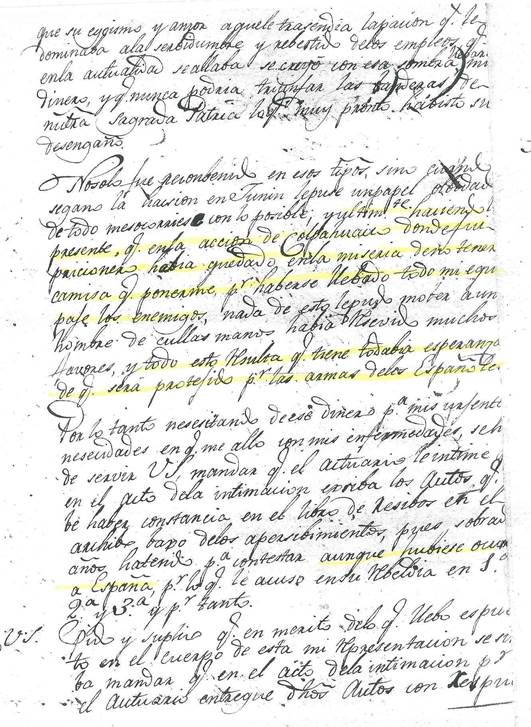 que su egoismo y amor aquele trasendia lapacion q.e le
dominaba ala serbidumbre y rebestid delos empleos q.e
enla actualidad seallaba secreyó con esa sombra
dinero, y q.e nunca podria triunfar las banderas de
ñutra Sagrada Patria lo q.e muy pronto habisto su
desengaño.
No solo fue reconbenid en esos tpños, sino
segano la accion en Junin lepuse un papel
detodo mesocorriese con lo posible, y ultim.te haciend
presente, q.e enla accion de Colpahuaico donde fui
pricionero habia quedado enla miseria deno tener
camisa q.e ponerme, p.r haberse llebado todo mi equi
paje los enemigos, nada de esto lepud mober aun
hombre de cullas manos habia Resevid muchos
fabores, y todo esto Resulta q.e tiene todabia esperanza
de q.e será protejido p.r las armas delos Españole
Por lo tanto nesesitando deese dinero p.a mis urjente
neseidades en q.e me allo con mis enfermedades, se h
de servir V.S. mandar q.e el actuario le intime
en el acto dela intimacion escriba los Autos, q.e
be haber constancia en el libro de Resibos en el
archibo baxo delos apersibimientos, pues sobrad
años hatenid p.a contestar aunque hubiese ocurr
a España, p.r lo q.e le acuso ensu Rebeldia en 1.a
2.a y 3.a y p.r tanto.
V.S. Pido y suplico q.e en merito delo q.e llebo espue
to en el cuerpo de esta mi Representacion se sir
ba mandar q.e en el acto dela intimacion p.r
el Actuario entregue dhos Autos con